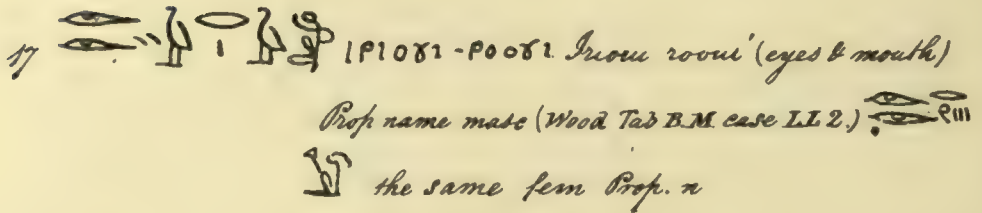 17 ⲓⲣⲓⲟⲩⲓ-ⲣⲟⲟⲩⲓ Irioui rooui (eyes & mouth)
Prop name masc (Wood Tab B.M. case LL 2.)
the same fem Prop. n